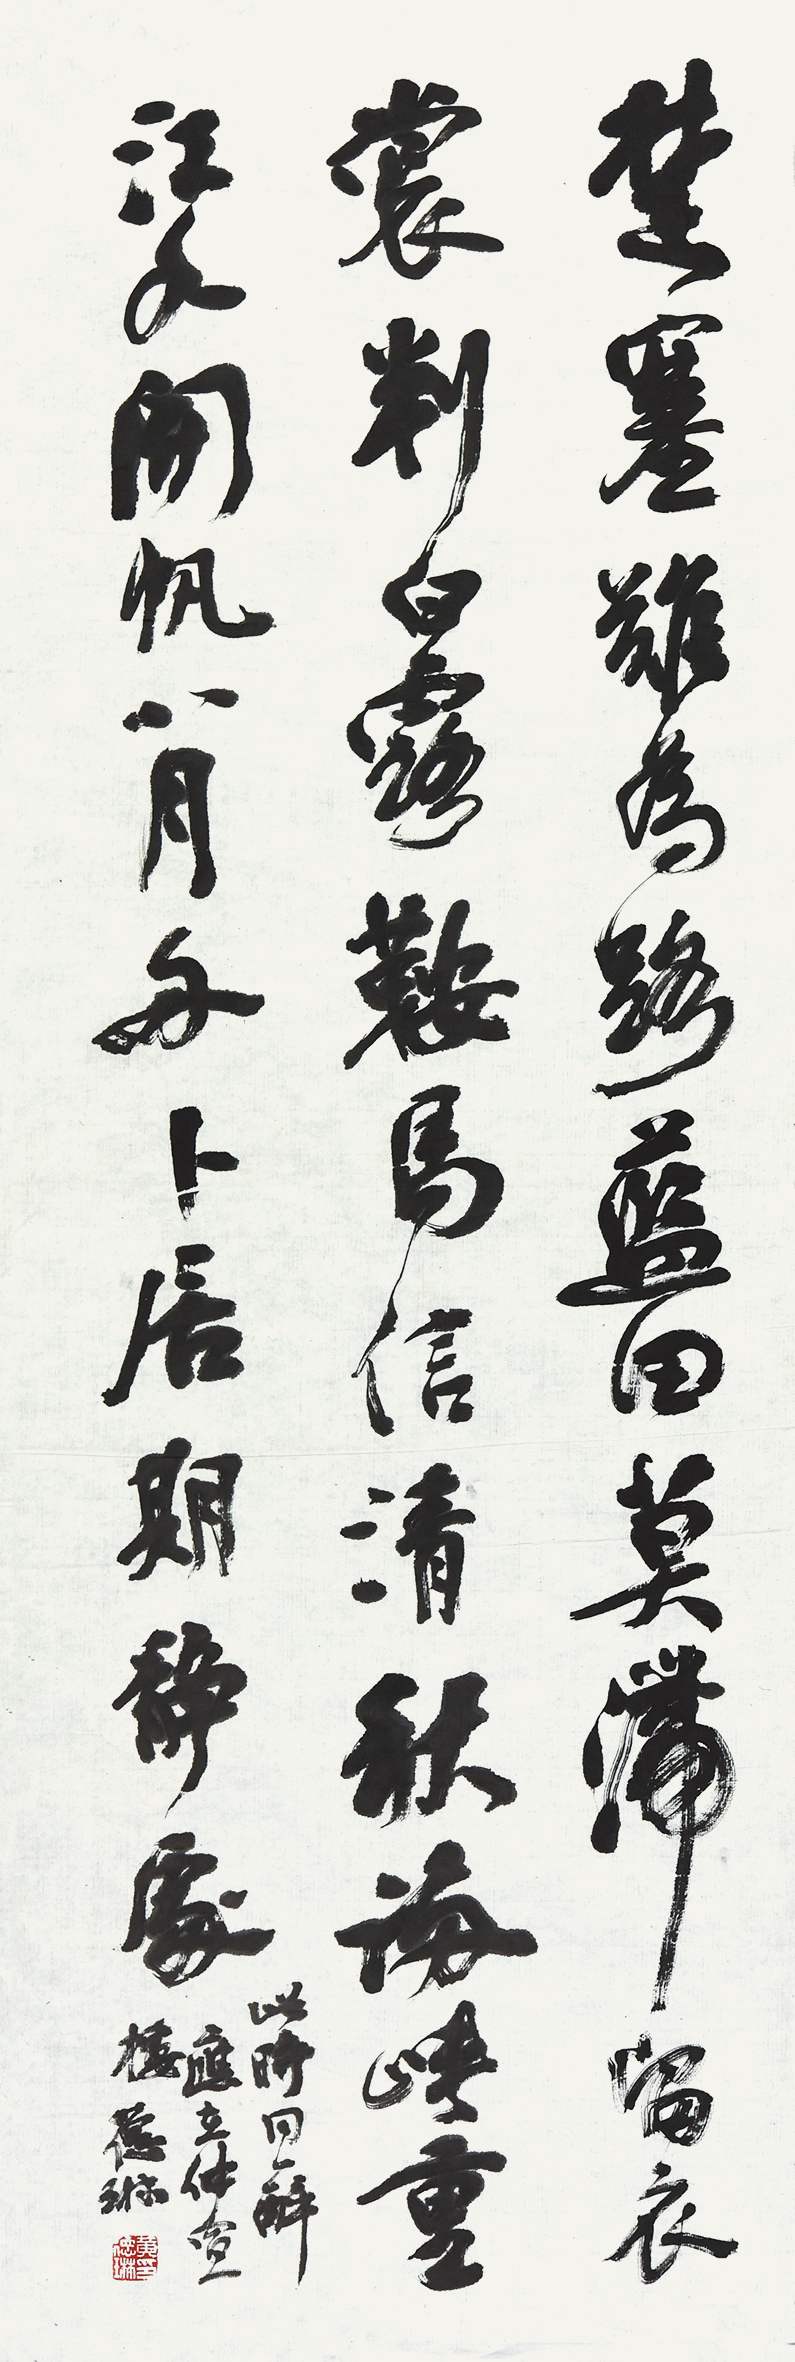 楚塞難為路藍田莫滯留衣
裳判白露鞍馬信清秋滿峽重
江水開帆八月舟卜居期靜處
此時同一醉
應在仲宣
樓 德琳